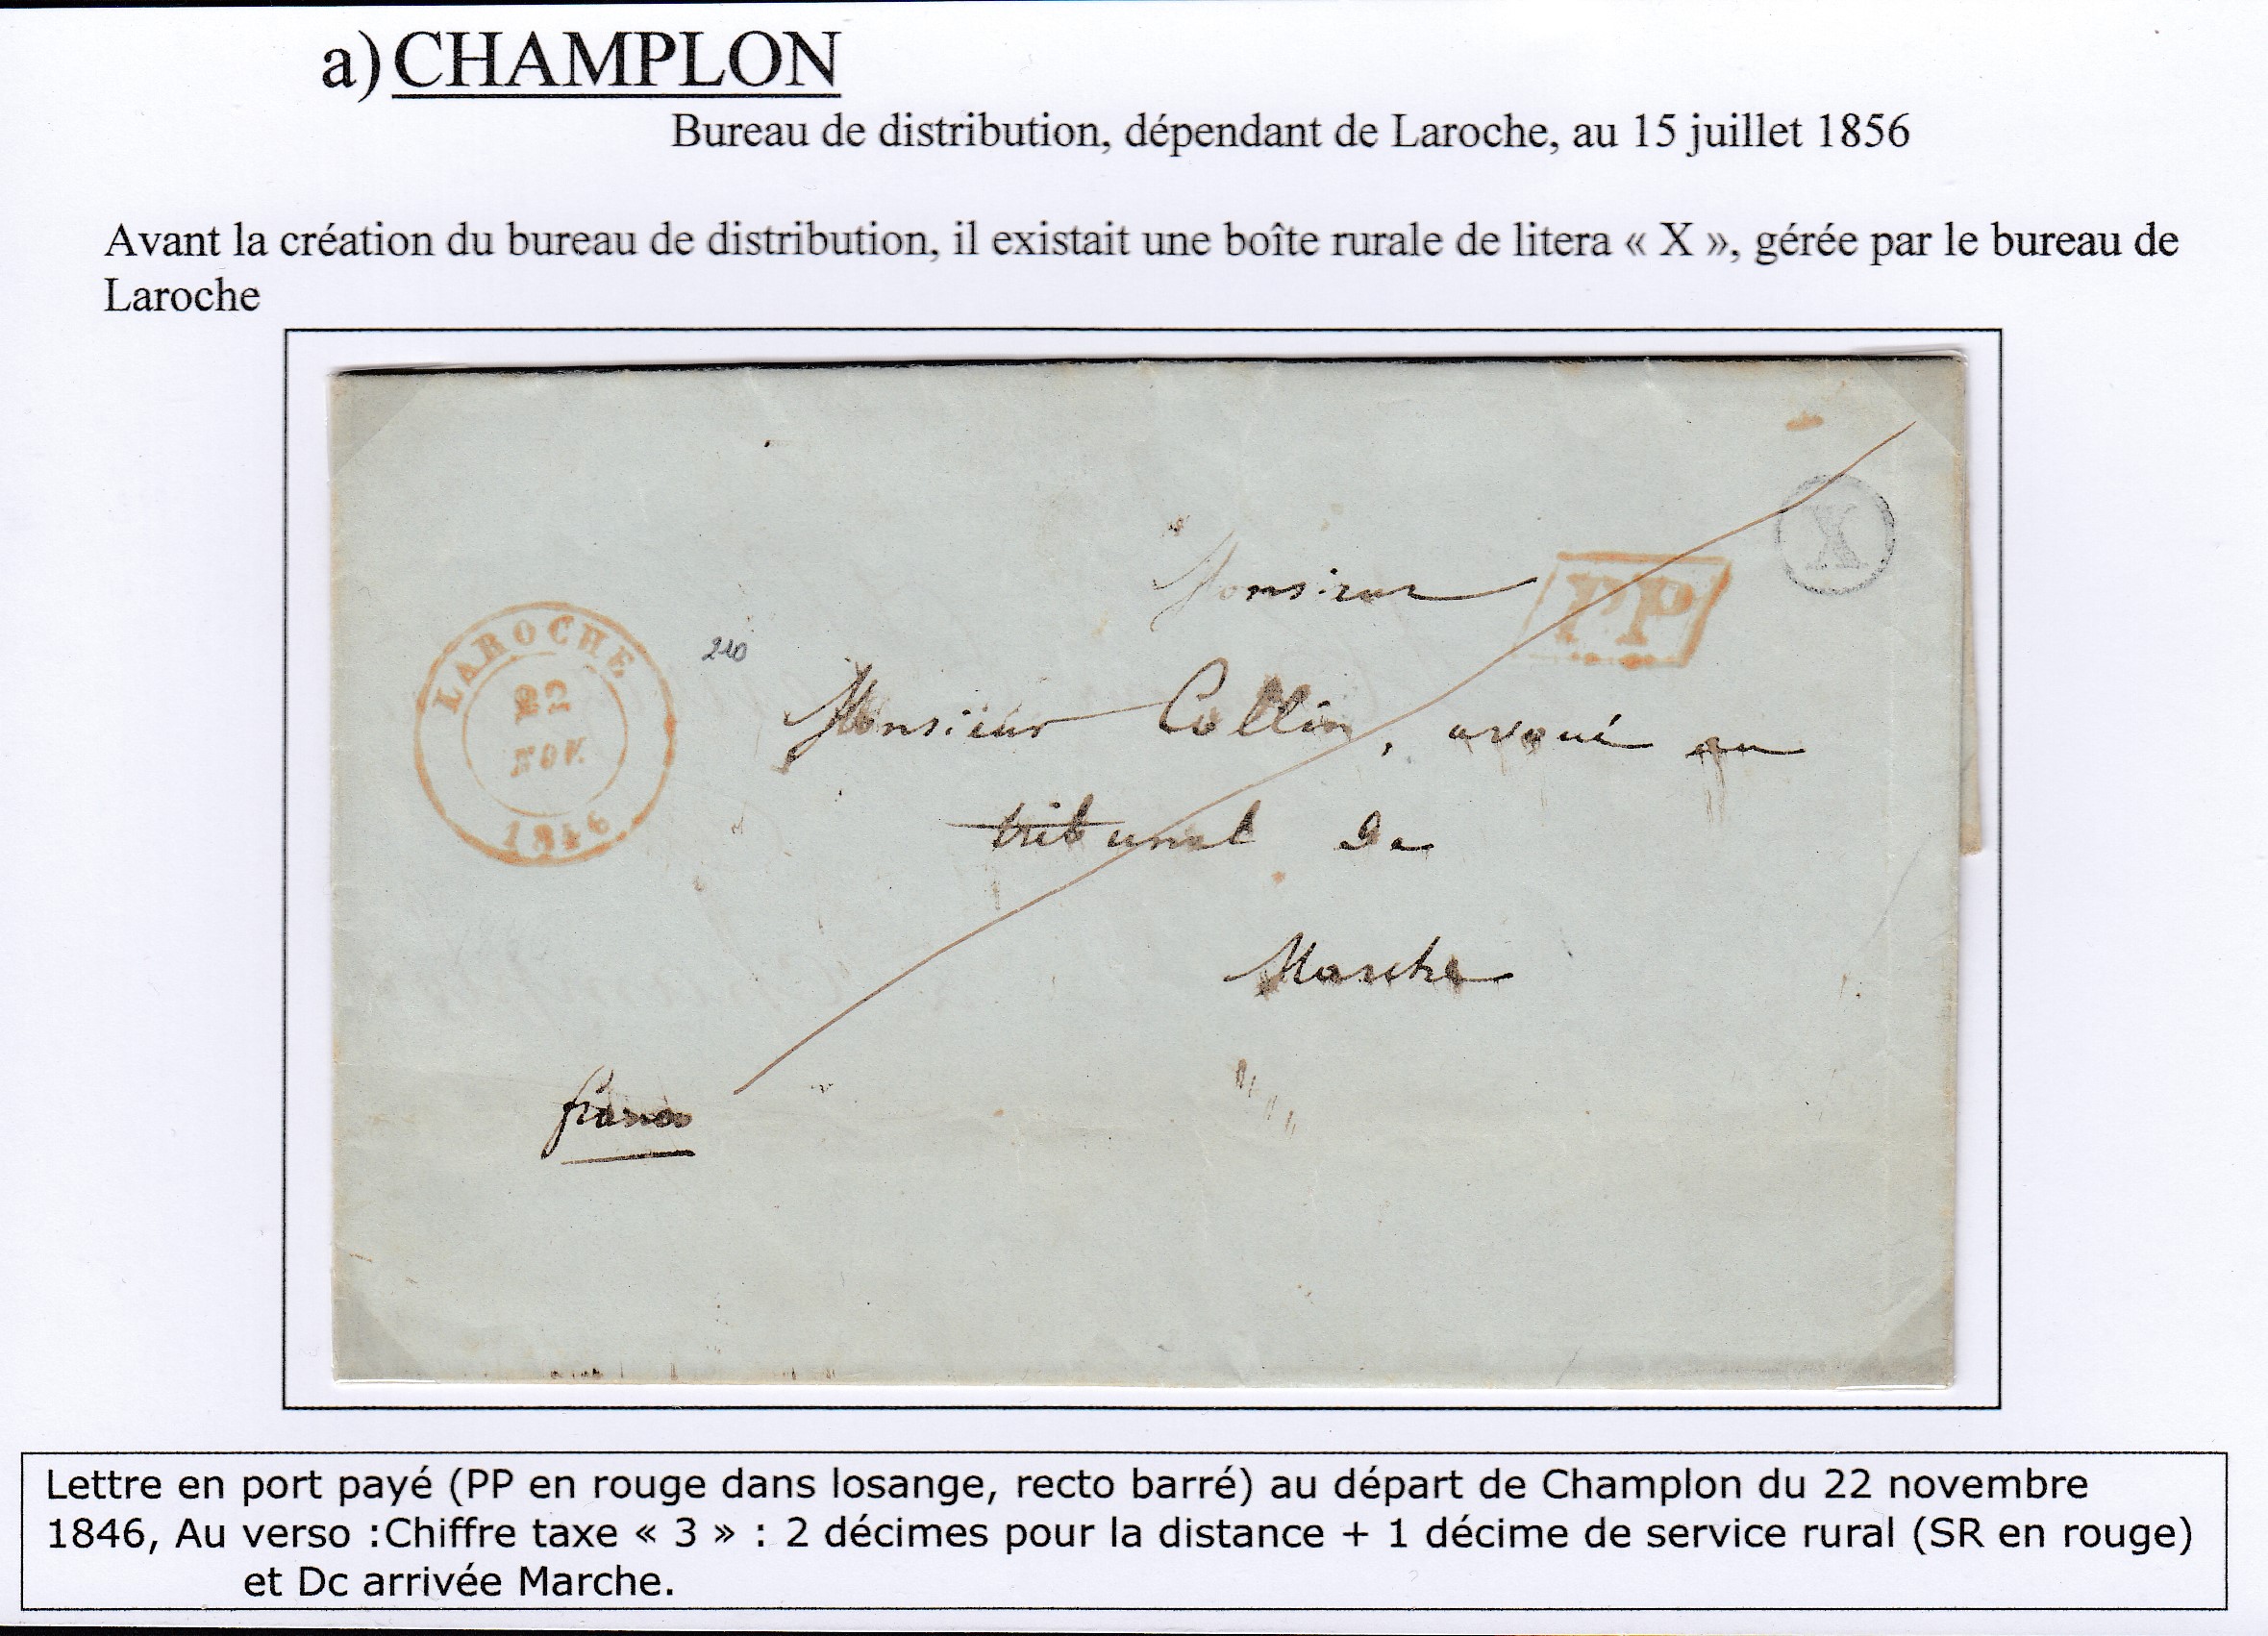 a) CHAMPLON
Bureau de distribution, dépendant de Laroche, au 15 juillet 1856
Avant la création du bureau de distribution, il existait une boîte rurale de litera « X », gérée par le bureau de
Laroche
X
Monsieur
PP
LAROCHE
22
NOV.
1846
210
Monsieur Collin, avoué au
tribunal de
Marche
franco
Lettre en port payé (PP en rouge dans losange, recto barré) au départ de Champlon du 22 novembre
1846, Au verso :Chiffre taxe « 3 » : 2 décimes pour la distance + 1 décime de service rural (SR en rouge)
et Dc arrivée Marche.